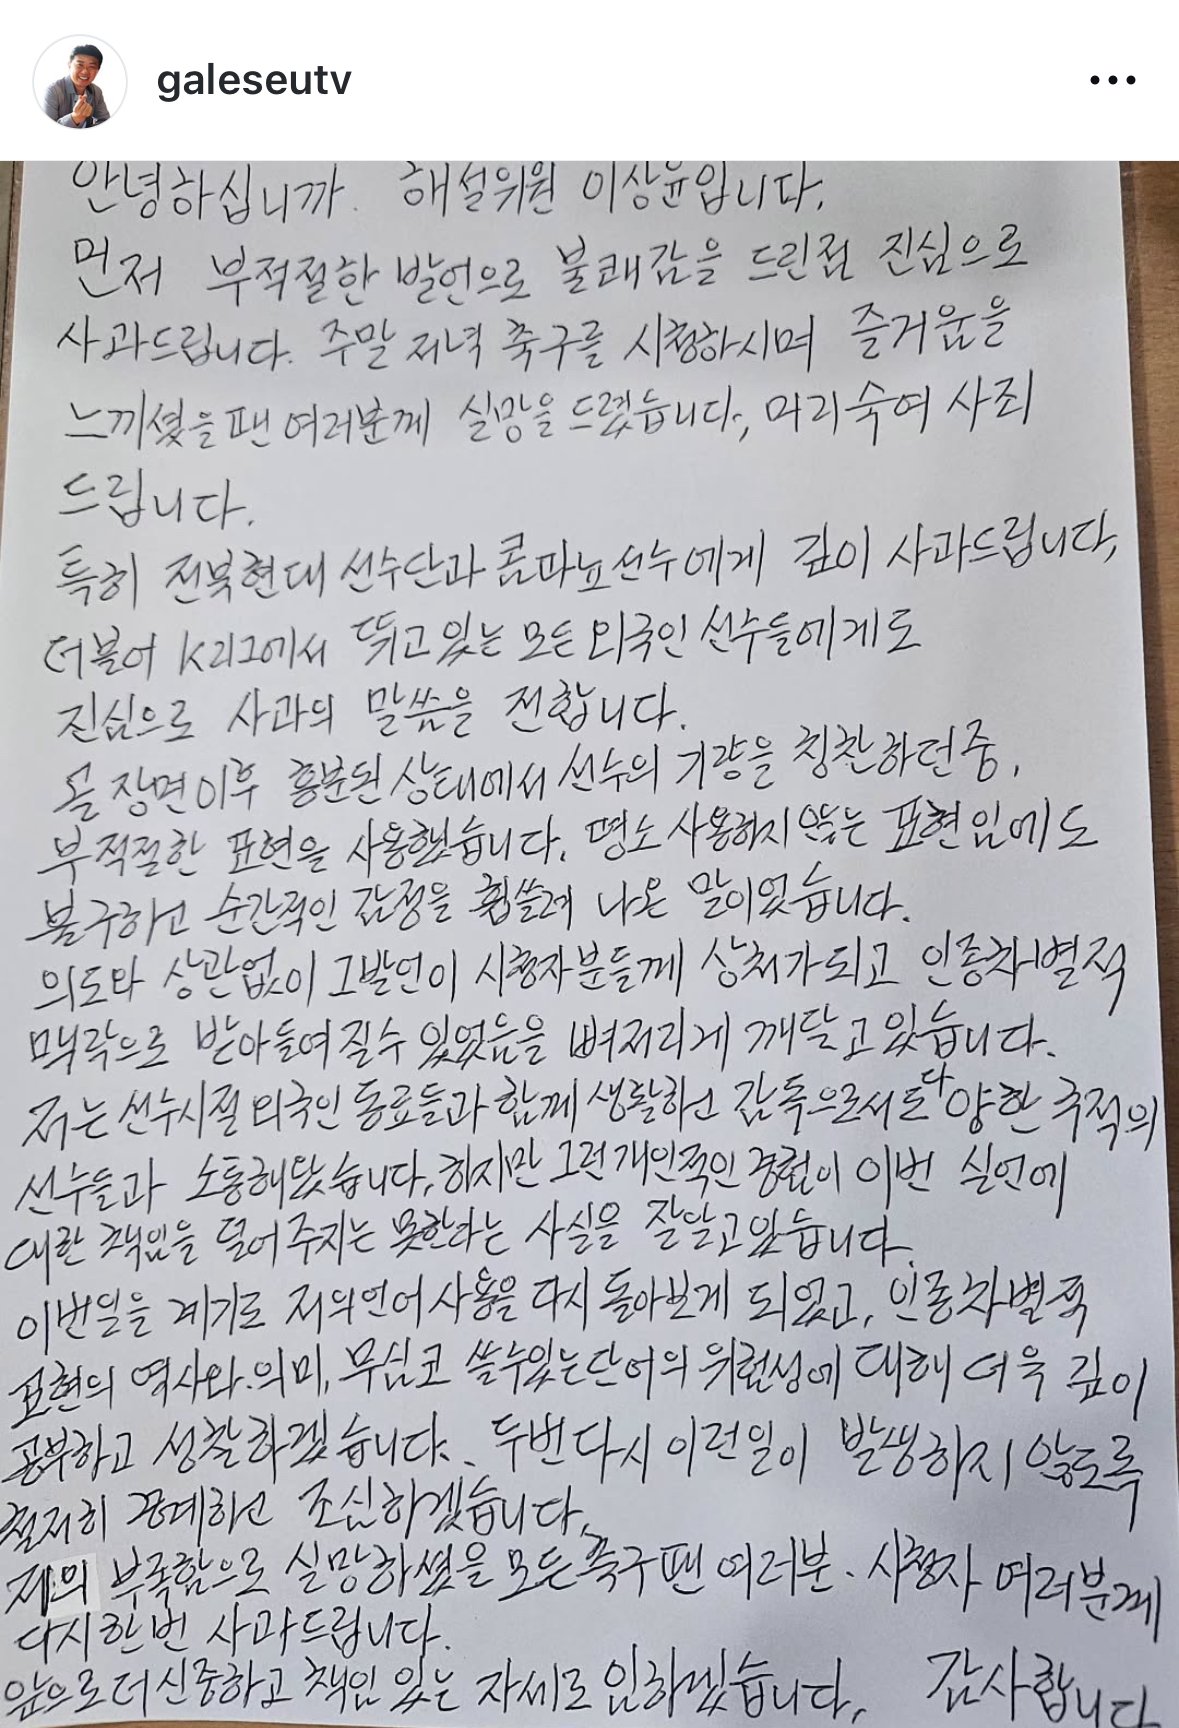 galeseutv
안녕하십니까. 해설위원 이상윤입니다.
먼저 부적절한 발언으로 불쾌감을 드린점 진심으로
사과드립니다. 주말 저녁 축구를 시청하시며 즐거움을
느끼셨을 팬 여러분께 실망을 드렸습니다, 머리숙여 사죄
드립니다.
특히 전북현대 선수단과 콤파뇨선수에게 깊이 사과드립니다,
더불어 K리그에서 뛰고 있는 모든 외국인 선수들에게도
진심으로 사과의 말씀을 전합니다.
골 장면이후 흥분된 상태에서 선수의 기량을 칭찬하던중,
부적절한 표현을 사용했습니다. 평소 사용하지 않는 표현임에도
불구하고 순간적인 감정을 휩쓸려 나온 말이었습니다.
의도와 상관없이 그발언이 시청자분들께 상처가되고 인종차별적
맥락으로 받아들여질수 있었음을 뼈저리게 깨닫고있습니다.
저는 선수시절 외국인 동료들과 함께 생활하고 감독으로서도 다양한 국적의
선수들과 소통해왔습니다, 하지만 그런 개인적인 경험이 이번 실언에
대한 책임을 덜어주지는 못한다는 사실을 잘알고있습니다.
이번일을 계기로 저의언어사용을 다시 돌아보게 되었고, 인종차별적
표현의 역사와 의미, 무심코 쓸수있는단어의 위험성에 대해 더욱 깊이
공부하고 성찰하겠습니다. 두번다시 이런일이 발생하지 않도록
철저히 경계하고 조심하겠습니다,
저의 부족함으로 실망하셨을 모든축구팬 여러분. 시청자 여러분께
다시한번 사과드립니다.
앞으로 더 신중하고 책임 있는 자세로 임하겠습니다, 감사합니다